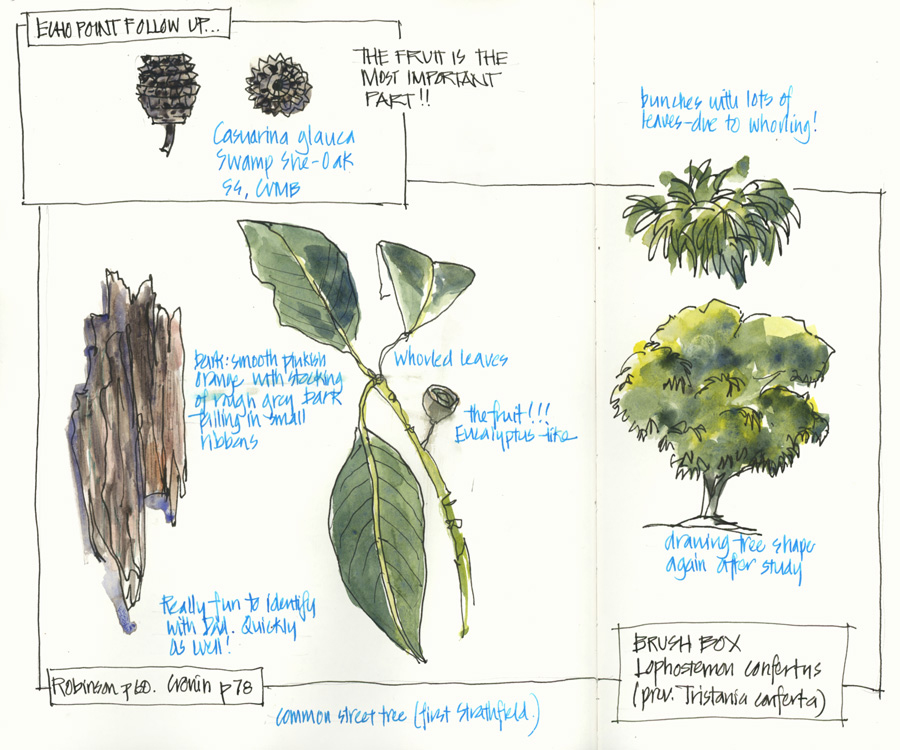 ECHO POINT FOLLOW UP...
THE FRUIT IS THE
MOST IMPORTANT
PART!!
Casuarina glauca
Swamp She-Oak
SG, CVMB
bunches with lots of
leaves-due to whorling!
bark: smooth pinkish
orange with stocking
of rough grey bark
falling in small
ribbons
whorled leaves
the fruit!!!
Eucalyptus-like
drawing tree shape
again after study
Really fun to identify
with Dad. Quickly
as well!
Robinson p60. Cronin p78
common street tree (first Strathfield.)
BRUSH BOX
Lophostemon confertus
(prev. Tristania conferta)